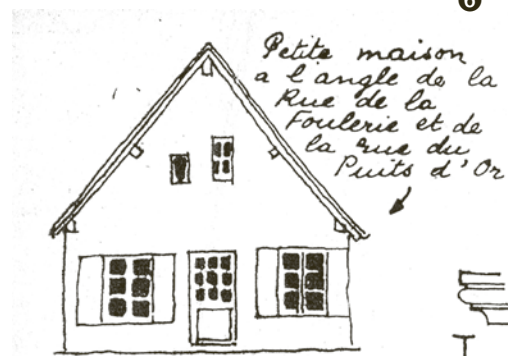 6
Petite maison
a l'angle de la
Rue de la
Foulerie et de
la rue du
Puits d'Or